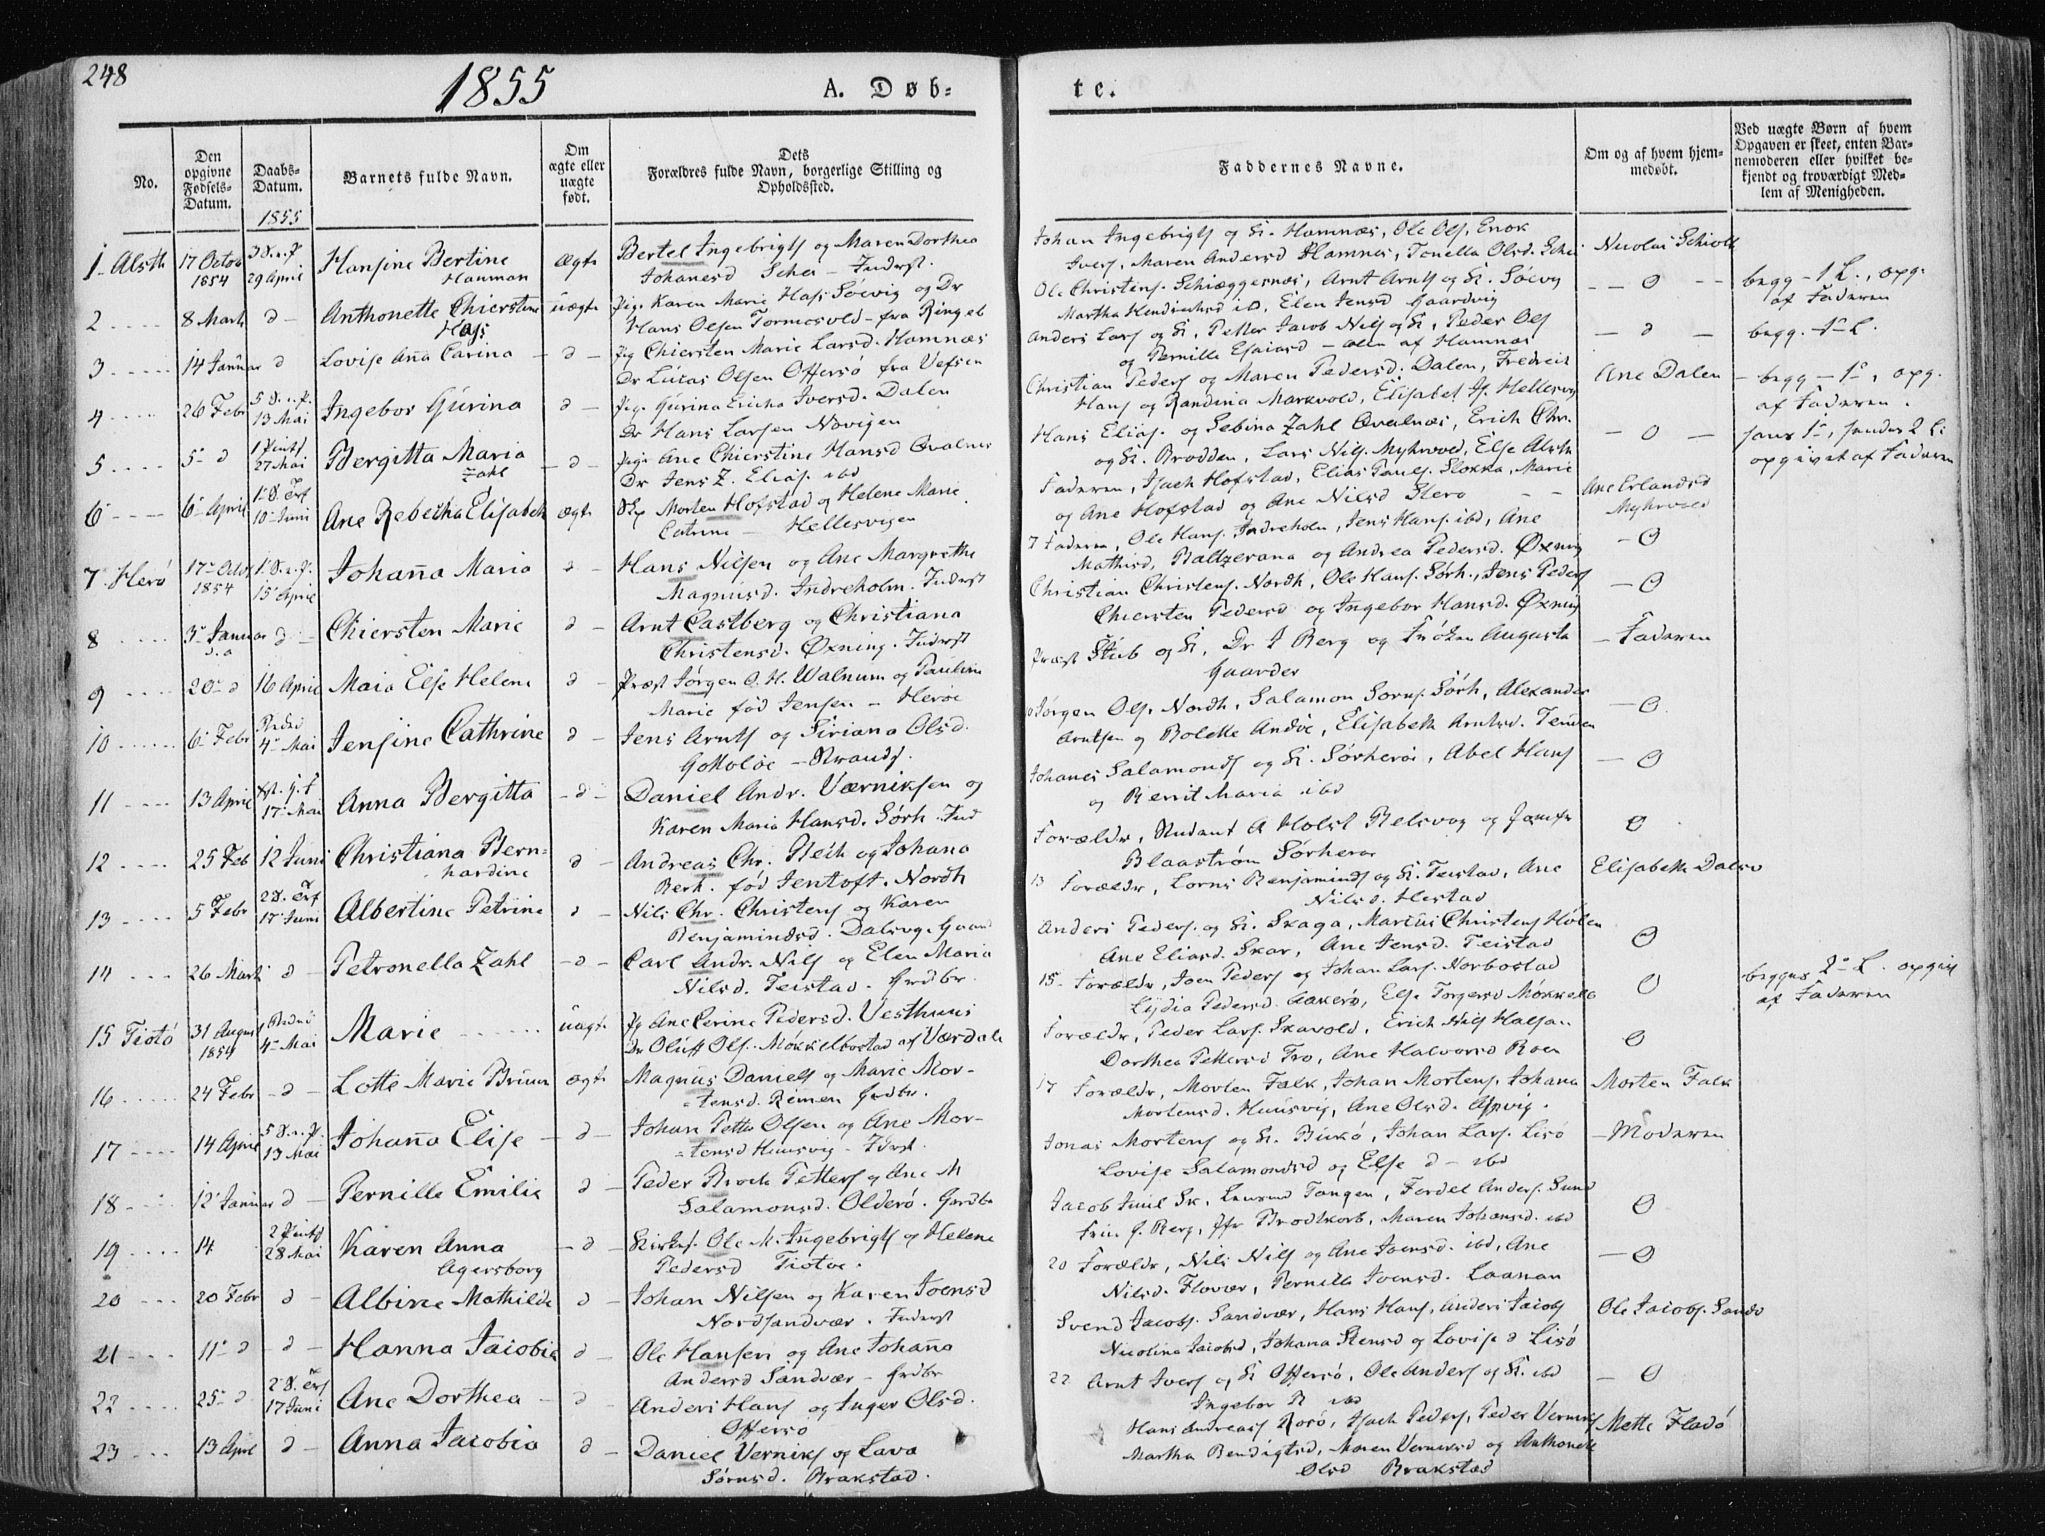 248
1855
A. Døb-
te.
No.
Den opgivne Fødsels-Datum.
Daabs-Datum.
1855
Barnets fulde Navn.
Om ægte eller uægte født.
Dets Forældres fulde Navn, borgerlige Stilling og Opholdsted.
Faddernes Navne.
Om og af hvem hjem-medøbt.
Ved uægte Børn af hvem Opgaven er skeet, enten Bar-nemoderen eller hvilket be-kjendt og troværdigt Med-lem af Menigheden.
1 Alsth 17 Octob 1854 29 April Hansine Bertine Hanman ægte Bertel Ingebrigts og Maren Dorthea
Johanesd Schei - Inderst.
Johan Ingebrigts og K. Hamnæs, Ole Ols. Enok
Ivers, Maren Andersd Hamnes, Tonella Olsd. Schei
2 8 Marts d Anthonette Chierstine Hajs uægte Pige Karen Marie Hajs Söevig og Dr
Hans Olsen Tormosvold - fra Ringeb
Ole Christens. Schiæggesnæs, Arnt Arnts og K. Söevg
Martha Hendrichsd ibd, Elen Jensd Gaardvig
begg - 1 L., opg.
af Faderen
3 14 Januar d Lovise Aña Carina d Pig Chiersten Marie Larsd. Hamnæs
Dr Lucas Olsen Offersö fra Vefsen
Anders Lars og K, Petter Jacob Nils og K, Peder Ols
og Pernille Esaiasd - alle af Hamnæs
begg. 1e L.
4 26 Febr 5 S. e. P. 13 Mai Ingebor Gurina d Pige Gurina Ericha Iversd. Dalen
Dr Hans Larsen Novigen
Christian Peders og Maren Pedersd. Dalen, Fredrich
Hans og Randina Markvold, Elisabet Hellesvig
Ane Dalen
begg - 1e, opg.
af Faderen.
5 5 d 1 Pints 27 Mai Bergitta Maria Zahl d Pige Ane Chierstine Hansd Qvalnes
Dr Jens Z. Elias. ibd
Hans Elias. og Sebina Zahl Qvalnæs, Erich Chr.
og K. Brodden, Lars Nils. Myhrvod, Else Alsth
opgivet af Faderen
6 6 April 10 Juni Ane Rebecha Elisabeth ægte Morten Hofstad og Helene Marie
Catrine - Hellesvigen
Faderen, Isach Hofstad, Elias Pauls. Slokka, Marie
og Ane Hofstad og Ane Nilsd Stero
Ane Erlandsd
Myhrvold
7 Herö 17 Octb 1854 15 April Johaña Maria d Hans Nilsen og Ane Margrethe
Magnusd. Indreholm. Inderst
7 Faderen, Ole Hans. Indreholm, Jens Hans. ibd, Ane
Mathisd, Baltzerana og Andrea Pedersd. Øxning
8 3 Januar d Chiersten Marie d Arnt Castberg og Christiana
Christensd. Øxning. Inderst
Christian Christens. Nordh, Ole Hans. Sörh., Jens Peders
Chiersten Pedersd og Ingebor Hansd. Øxning
9 20 d 16 April Maia Else Helene d Præst Jörgen O. H. Walnum og Pauline
Marie fød Jensen - Heröe
Præst Stub og K, Dr I Berg og Frøken Augusta
Gaarder
Faderen
10 6 Febr 4 Mai Jensine Cathrine d Jens Arnts og Siriana Olsd.
Gokolöe - Strands.
Jörgen Ols. Nordh, Salamon Sorns. Sörh, Alexander
Arntsen og Bolette Andöe, Elisabeth Arntsd. Tenden
11 13 April 17 Mai Anna Bergitta d Daniel Andr. Værniksen og
Karen Maria Hansd. Sörh. Ind
Johanes Salamonds og K. Sörheröe, Abel Hans
og Berrit Maria ibd
12 25 Feb 12 Juni Christiana Bern-hardine d Andreas Chr. Bech og Johana
Berh. fød Jentoft. Nordh
Forældr, Student A Holst Belsvog og Jomfr
Blaastrøm Sörheroe
13 5 Febr 17 Juni Albertine Petrine d Nils Chr. Christens og Karen
Benjamindsd. Dalsvg. Gaard
13 Forældr, Lorns Benjaminds og K. Teistad, Ane
Nilsd. Hestad
Elisabeth Dalsv
14 26 Marts d Petronella Zahl d Carl Andr. Nils og Elen Maria
Nilsd. Teistad. Grdbr.
Anders Peders. og K. Skaga, Marcus Christens Holen
Ane Eliasd. Skar, Ane Jensd. Teistad
15 Tiotö 31 August 1854 4 Mai Marie uægte Pg Ane Perine Pedersd. Vesthuus
Dr Oluff Ols. Mokkelbostad af Værdale
15 Forældr, Joen Peders og Johan Lars. Norbostad
Lydia Pedersd. Aakerö, Else Torgersd Mokkelb
begges 2 L. opgiv
af Faderen
16 24 Febr d Lotte Marie Bruun ægte Magnus Daniels og Marie Mor-
tensd. Remen Grdbr.
Forældr, Peder Lars. Skavold, Erich Nils Halsan
Dorthea Pettersd Tro, Ane Halvorsd Roen
17 14 April 5 S. e. P. 13 Mai Johaña Elise d Johan Petter Olsen og Ane Mor-
tensd Huusvig - Inderst
17 Forældr, Morten Falk, Johan Mortens, Johana
Mortensd. Huusvig, Ane Olsd. Aspvig.
Morten Falk
18 12 Januar d Pernille Emilie d Peder Broch Petters og Ane M
Salamonsd. Olderö. Grdbr
Jonas Mortens og K. Buckö, Johan Lars. Lisö
Lovise Salamonsd og Else d - ibd
Moderen
19 14 2 Pints 28 Mai Karen Anna Agersborg d Kirkes. Ole M. Ingebrigts og Helene
Pedersd Tiotöe.
Jacob Juul Sk, Tangen, Fordel Anders. Sund
Fru J. Berg, Jfr Brodtkorb, Maren Johansd. ibd
20 20 Febr d Albine Mathilde d Johan Nilsen og Karen Joensd
Nordsandvær. Inderst
20 Forældr, Nils Nils og Ane Joensd. ibd, Ane
Nilsd. Flovær, Pernille Joensd. Laanan
21 11 d d Hanna Jacobia d Ole Hansen og Ane Johaña
Andersd Sandvær - Grdbr
Svend Jacobs. Sandvær, Hans Hans, Anders Jacobs
Nicolina Jacobsd, Johana Stensd og Lovise d Lisö
Ole Jacobs. Sandv
22 25 d 17 Juni Ane Dorthea d Anders Hans og Inger Olsd.
Offersö
22 Arnt Ivers og K Offersö, Ole Anders og K. ibd
Ingebor ibd
23 13 April d Anna Jacobia d Daniel Verniks og Lava
Sörnsd. Brakstad.
Hans Andreas Rosö, Isach Peders, Peder Verniks
Martha Bendigtsd, Maren Verniksd og Anthonett
Olsd Brakstad
Mette Fladö